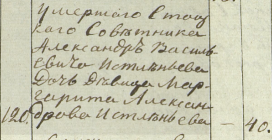 умершаго Статс
каго Совѣтника
Александръ Василь
евича Истлѣньева
Дочь Дѣвица Мар
гарита Алексан
120. дрова Истлѣньева — 40.